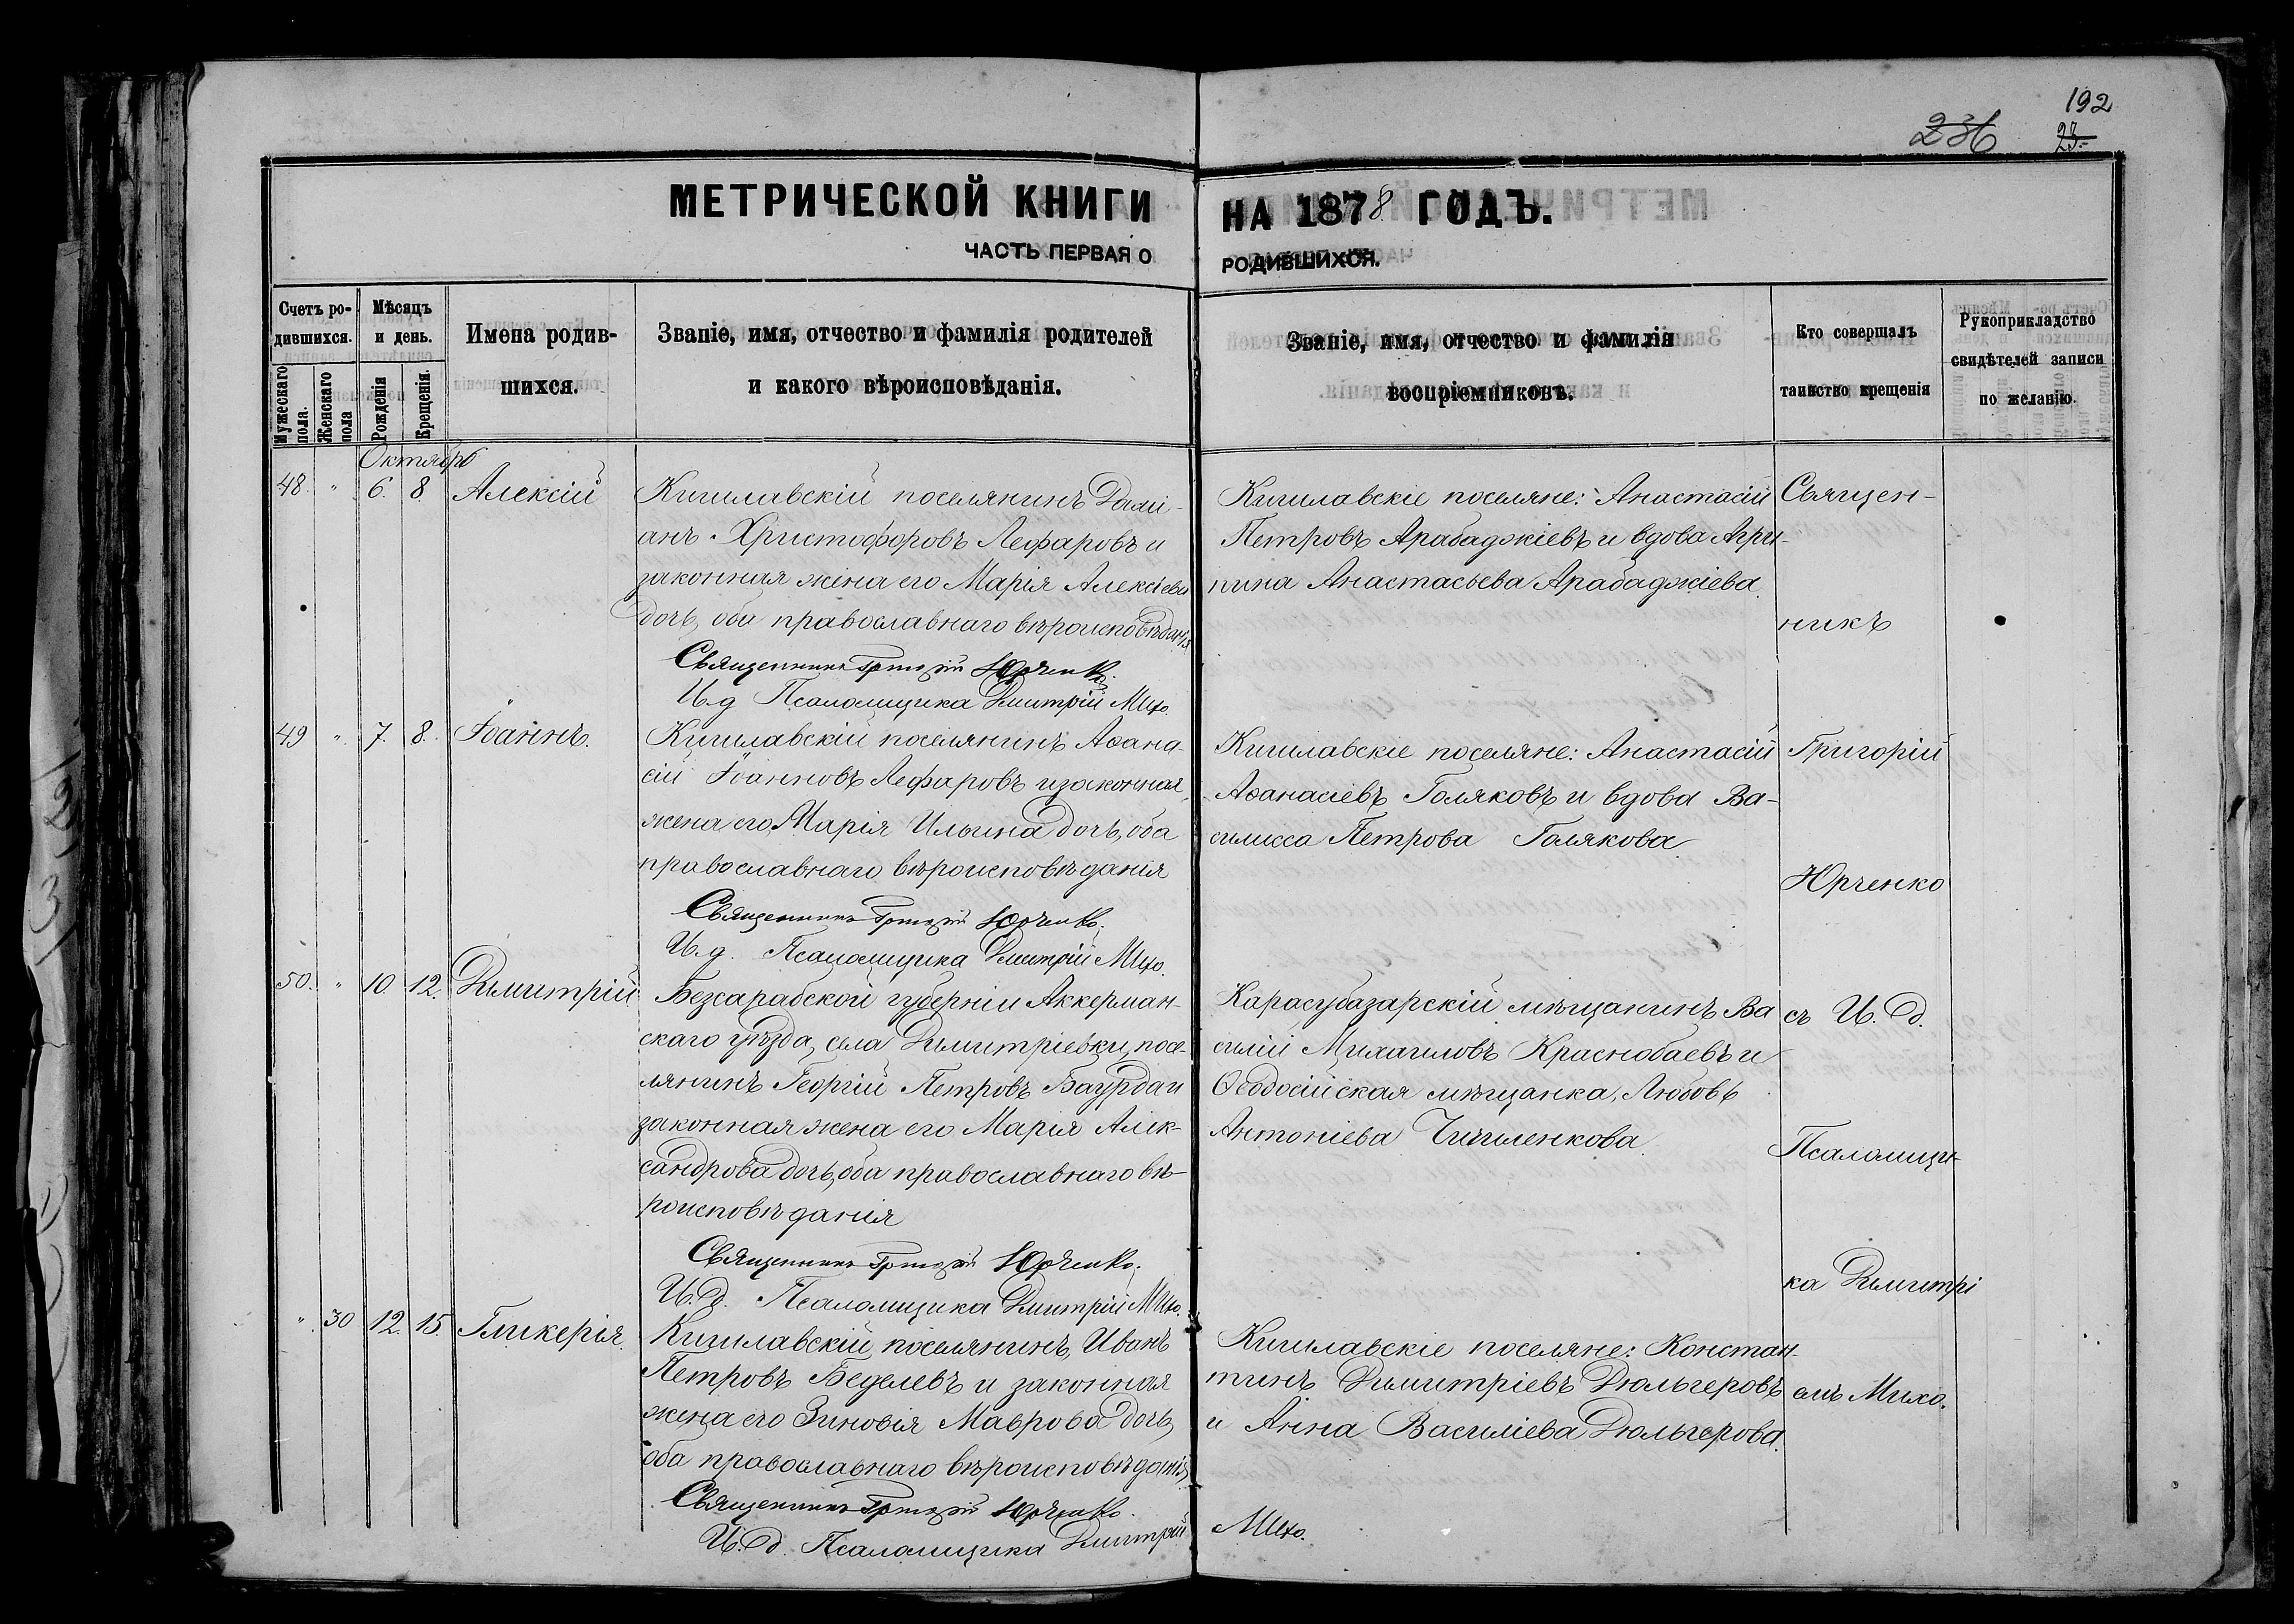 192
236
23.
МЕТРИЧЕСКОЙ КНИГИ НА 1878 ГОДЪ.
ЧАСТЬ ПЕРВАЯ О РОДИВШИХСЯ.
Счетъ ро-
дившихся.
Мужескаго
пола.
Женскаго
пола
Мѣсяцъ
и день.
Рожденія
Крещенія.
Имена родив-
шихся.
Званіе, имя, отчество и фамилія родителей
и какого вѣроисповѣданія.
Званіе, имя, отчество и фамилія
воспріемниковъ.
Кто совершалъ
таинство крещенія
Рукоприкладство
свидѣтелей записи
по желанію.
Октябрь
48. " 6. 8 Алексій
Кишлавскій поселянинъ Дамі-
анъ Христофоровъ Лефаровъ и
законная жена его Марія Алексіева
дочь, оба православнаго вѣроисповѣданія
Священникъ Григорій Юрченко.
И.д Псаломщика Дмитрій Михо.
Кишлавскіе поселяне: Анастасій
Петровъ Арабаджіевъ и вдова Агри-
пина Анастасьева Арабаджіева.
Священ-
никъ
49 " 7. 8. Іоаннъ.
Кишлавскій поселянинъ Аѳана-
сій Іоанновъ Лефаровъ и законная
жена его Марія Ильина дочь, оба
православнаго вѣроисповѣданія
Священникъ Григорій Юрченко.
И.д. Псаломщика Дмитрій Михо.
Кишлавскіе поселяне: Анастасій
Аѳанасіевъ Голяковъ и вдова Ва-
силисса Петрова Голякова
Григорій
Юрченко
50. " 10. 12. Димитрій
Безсарабской губерніи Аккерман-
скаго уѣзда, села Димитріевки, посе-
лянинъ Георгій Петровъ Баурда и
законная жена его Марія Алек-
сандрова дочь, оба православнаго вѣ-
роисповѣданія
Священникъ Григорій Юрченко.
И.Д. Псаломщика Дмитрій Михо.
Карасубазарскій мѣщанинъ Ва
силій Михаиловъ Краснобаевъ и
Ѳеодосійская мѣщанка, Любовь
Антоніева Чичиленкова.
съ И.д.
Псаломщи-
ка Димитрі
" 30 12. 15. Гликерія.
Кишлавскій поселянинъ, Иванъ
Петровъ Беделевъ и законная
жена его Зиновія Маврова дочь,
оба православнаго вѣроисповѣданія
Священникъ Григорій Юрченко.
И.Д. Псаломщика Дмитрій Михо.
Кишлавскіе поселяне: Констан-
тинъ Димитріевъ Дюльгеровъ
и Анна Василіева Дюльгерова.
емъ Михо.